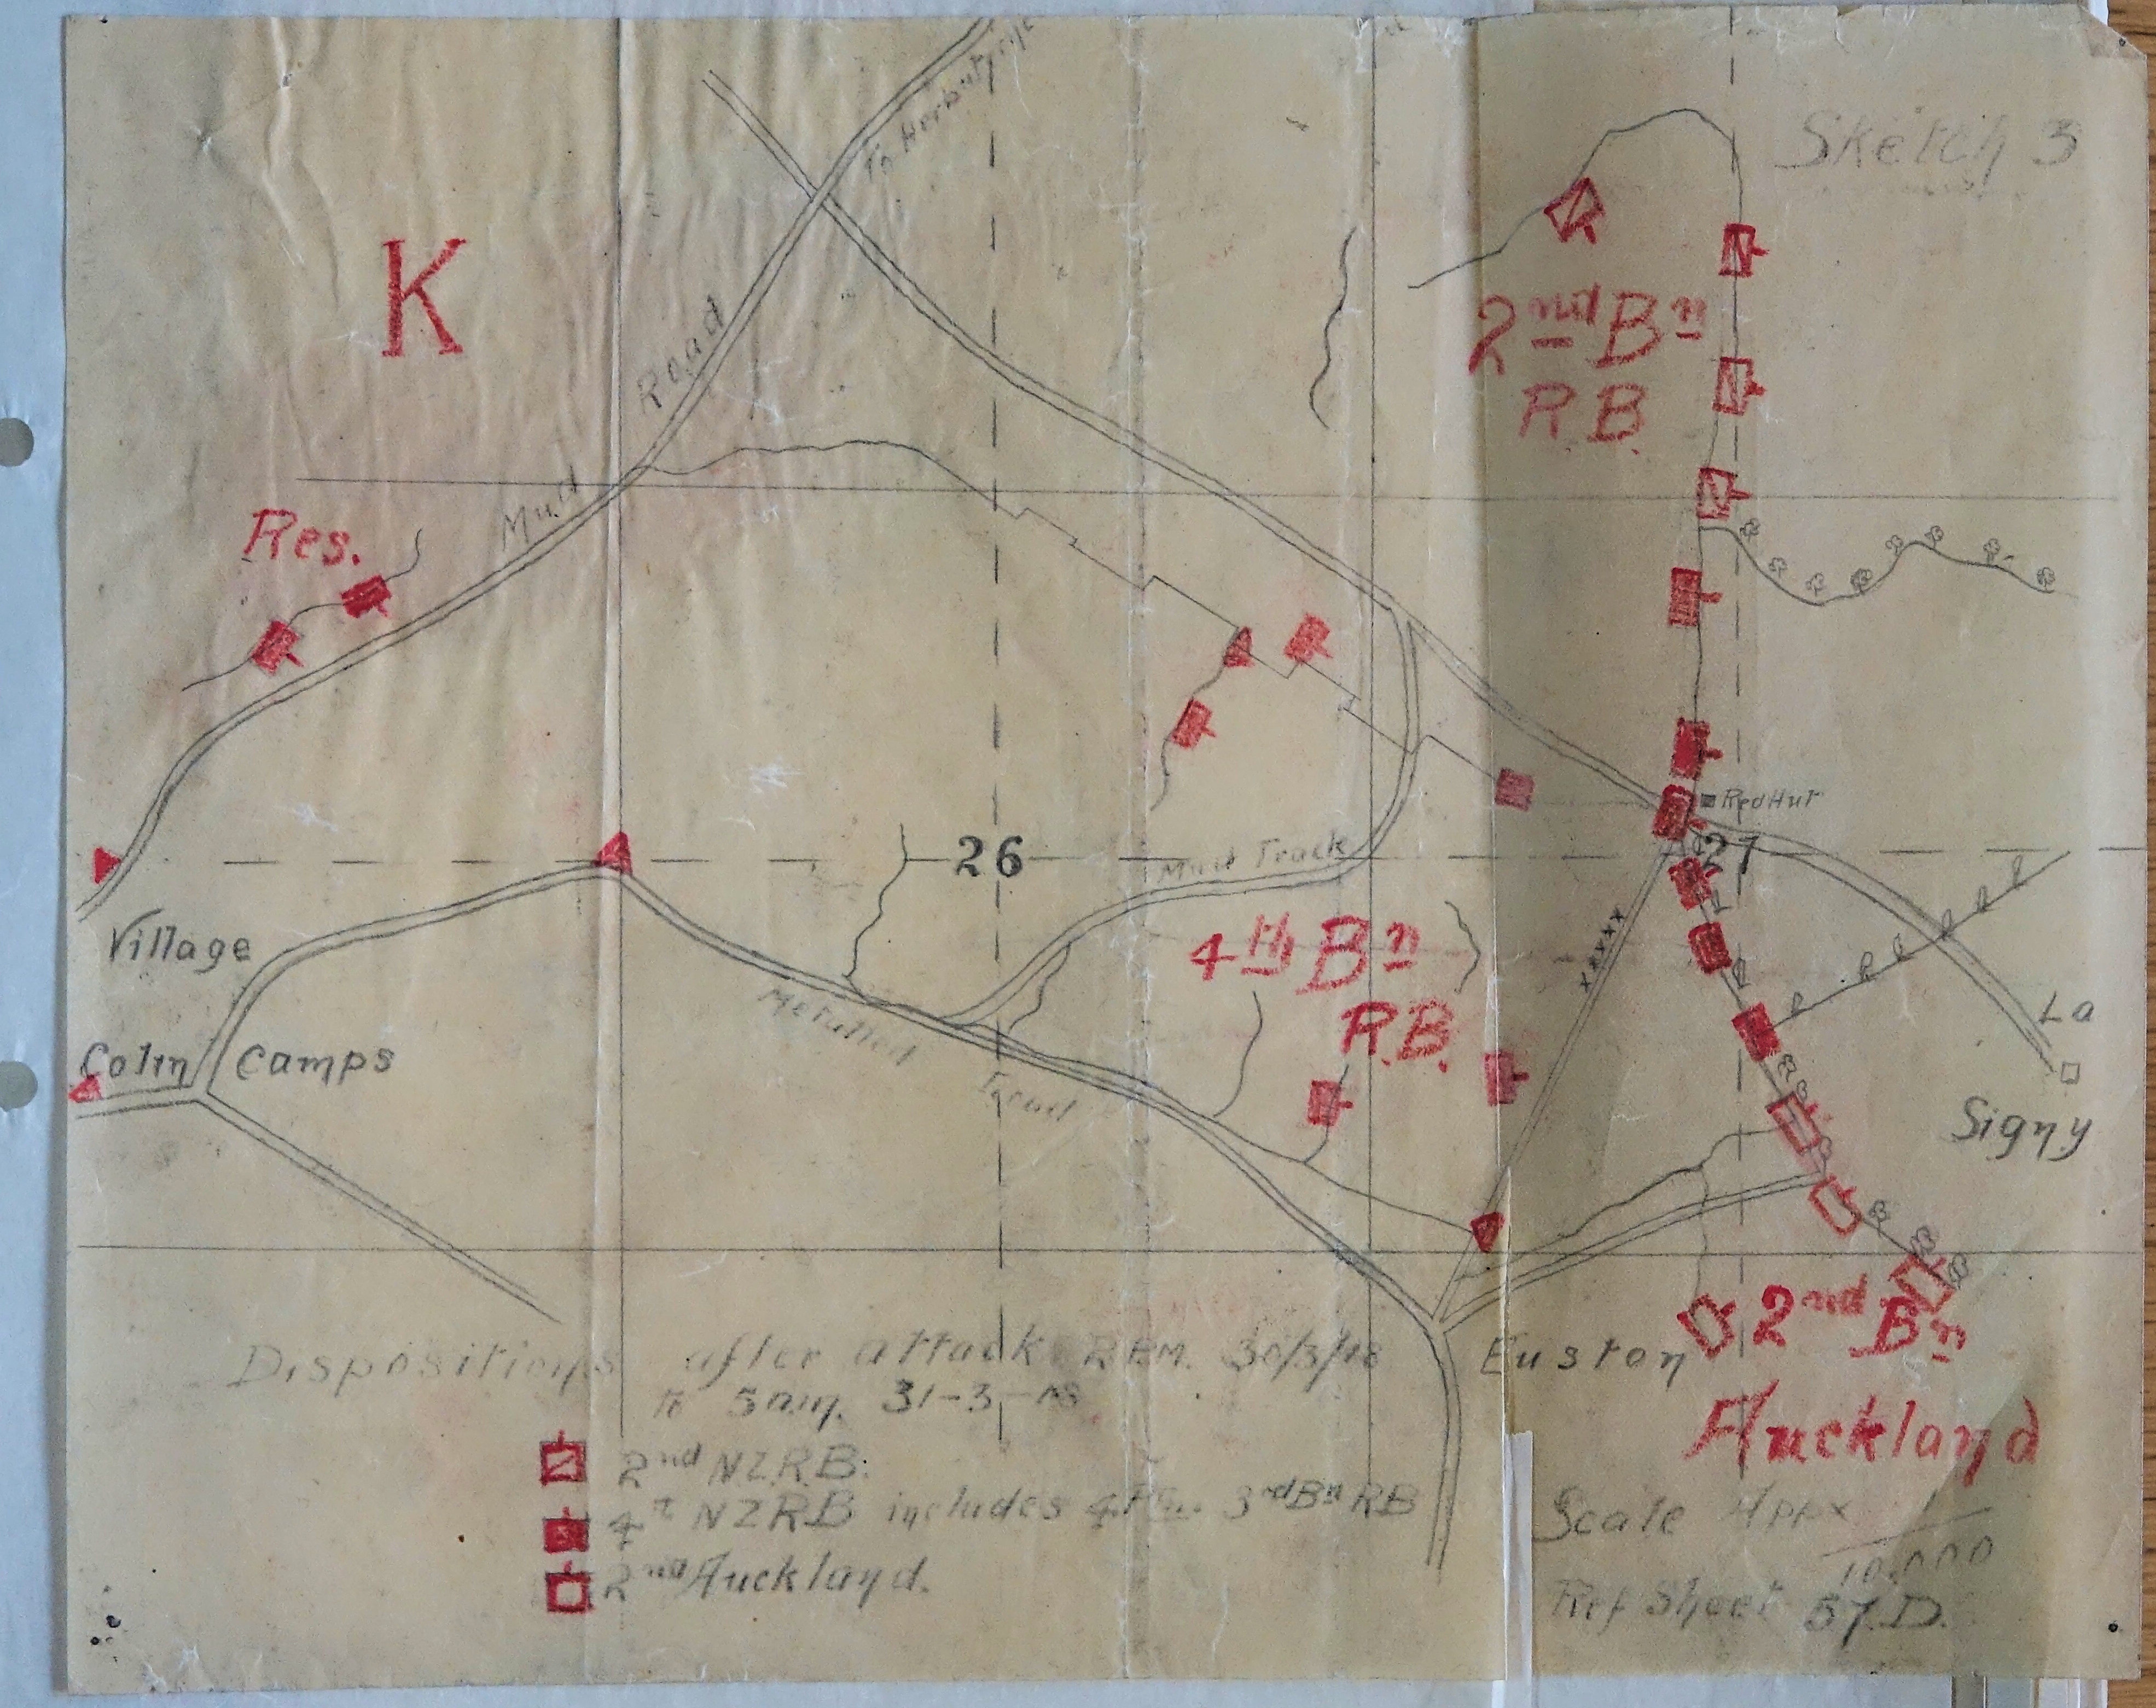 Sketch 3
To Herbuterne
K
Mud Road
2nd Bn
R B.
Res.
Red Hut
26
27
Mud Track
Village
Colin Camps
4th Bn
R.B.
Metalled
La
Signy
Euston
2nd Bn
Auckland
Dispositions after attack 2 P.M. 30/3/18
to 5 a.m. 31-3-18
2nd N.Z.R.B.
4th NZRB includes 3rd Bn RB
2nd Auckland.
Scale Appx 1
10.000
Ref Sheet 57.D.